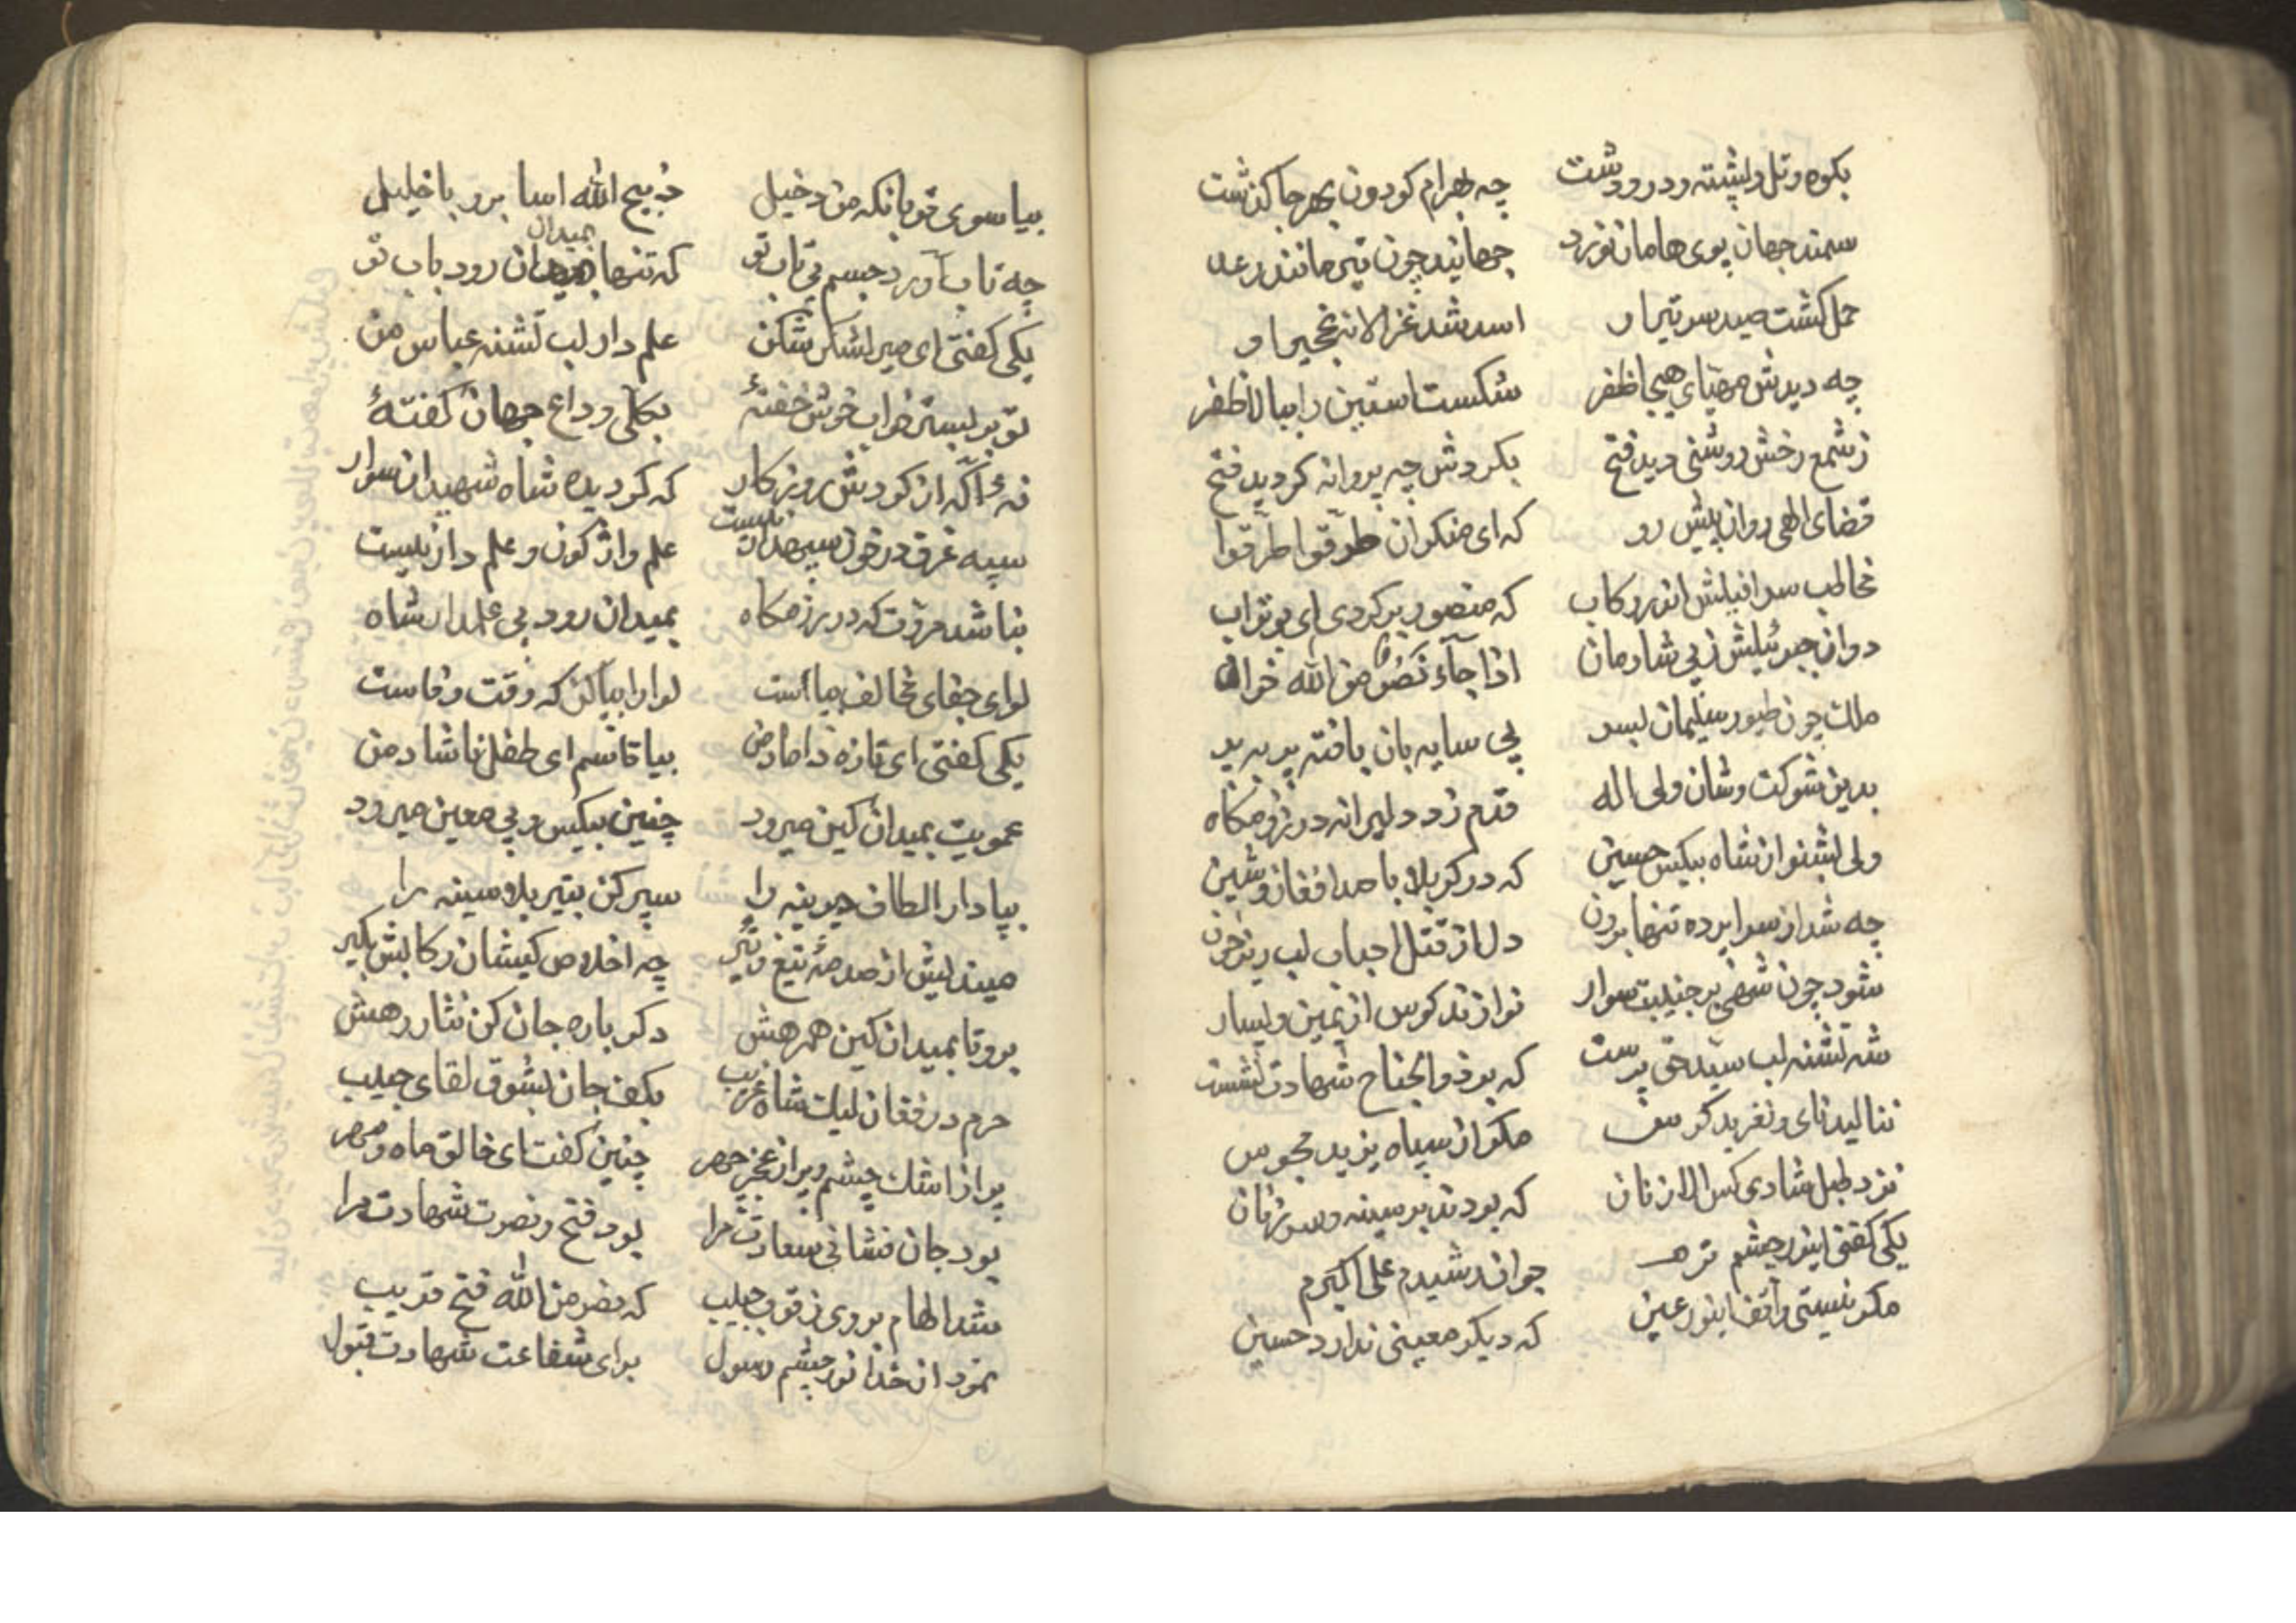 بکوه و تل و پشته و در و دشت چه بهرام کردون بهر جا کذشت
سمند جهان پوی هامان نورد جهانید چون تیر مانند رعد
حمل کشت صید سر تیر او اسد شد غزالانه نخجیر او
چه دیدش مهیای هیجا ظفر شکست استین را ببالا ظفر
ز شمع رخش روشنی دید فتح بکردش چه پروانه کردید فتح
قضای الهی روان پیش رو که ای منکران طرقوا طرقوا
مخاطب سرافیلش اندر رکاب که منصور برکردی ای بوتراب
دوان جبرئیلش ز پی شادمان اذا جآء نصر من الله خوان
ملک چون طیور سلیمان بسر پی سایه بان بافته پر به پر
بدین شوکت و شان ولی اله قدم زد دلیرانه در رزمکاه
ولی بشنو از شاه بیکس حسین که در کربلا با صد افغان و شین
چه شد از سراپرده تنها برون دل از قتل احباب لبریز خون
شود چون شهی بر جنیبت سوار نوازند کوس از یمین و یسار
شه تشنه لب سید حق پرست که بر ذوالجناح شهادت نشست
ننالید نای و نغرید کوس مکر از سپاه یزید مجوس
نزد طبل شادی کس الا زنان که بودند بر سینه و سر زنان
یکی کفتی اینور چشم ترم جوان رشیدم علی اکبرم
مکر نیستی واقف اینور عین که دیکر معینی ندارد حسین
بیا سوی قربانکه من دخیل ذبیح الله اسا برو با خلیل
چه تاب آورد جسم بی تاب تو که تنها بمیدان رود باب تو
بمیدان
یکی کفتی ای میر لشکر شکن علمدار لب تشنه عباس من
تو بر بستر خواب خوش خفتهٔ بکلی وداع جهان کفتهٔ
نهٔ آکه از کردش روزکار که کردیده شاه شهیدان سوار
سپه غرق در خون سپهدار نیست علم واژکون و علمدار نیست
بناشد مروت که در رزمکاه بمیدان رود بی علمدار شاه
لوای جفای مخالف بپا است لوا را بپا کن که وقت وفاست
یکی کفتی ای تازه داماد من بیا قاسم ای طفل ناشاد من
عمویت بمیدان کین میرود چنین بیکس و بی معین میرود
بپا دار الطاف دیرینه را سپر کن بتیر بلا سینه را
میندیش از صدمهٔ تیغ و تیر چه اخلاص کیشان رکابش بکیر
برو تا بمیدان کین همرهش دکر باره جان کن نثار رهش
حرم در فغان لیک شاه غریب بکف جان بشوق لقای حبیب
پر از اشک چشم و پر از عجز چهر چنین کفت ای خالق ماه و مهر
بود جان فشانی سعادت مرا بود فتح و نصرت شهادت مرا
شد الهام بر وی ز قرب حبیب که نصر من الله فتح قریب
نمود از خدا نور چشم رسول برای شفاعت شهادت قبول